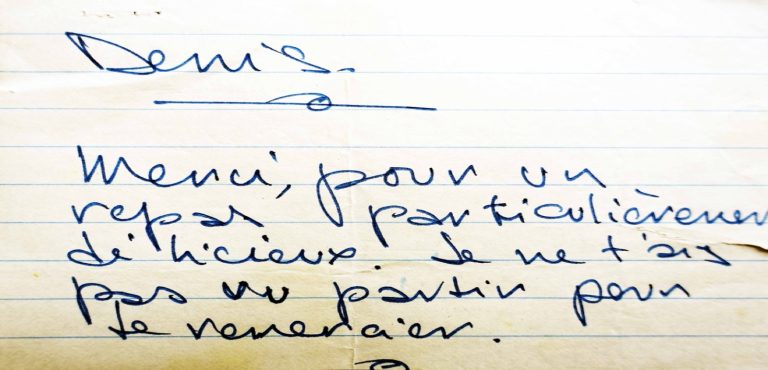 Denis.
Merci, pour un
repas particulièremen
délicieux. Je ne t'ais
pas vu partir pour
te remercier.